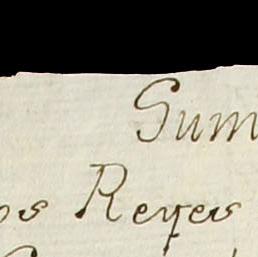 Sum
os Reyes